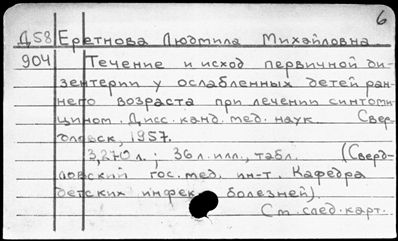 6
Д58 Еретнова Людмила Михайловна
904 Течение и исход первичной ди-
зентерии у ослабленных детей ран-
него возраста при лечении синтоми-
цином. Дисс. канд. мед. наук. Свер-
ловск, 1957.
3,270 л.; 36 л. илл., табл. (Сверд-
ловский гос. мед. ин-т. Кафедра
детских инфек. болезней).
См. след. карт.